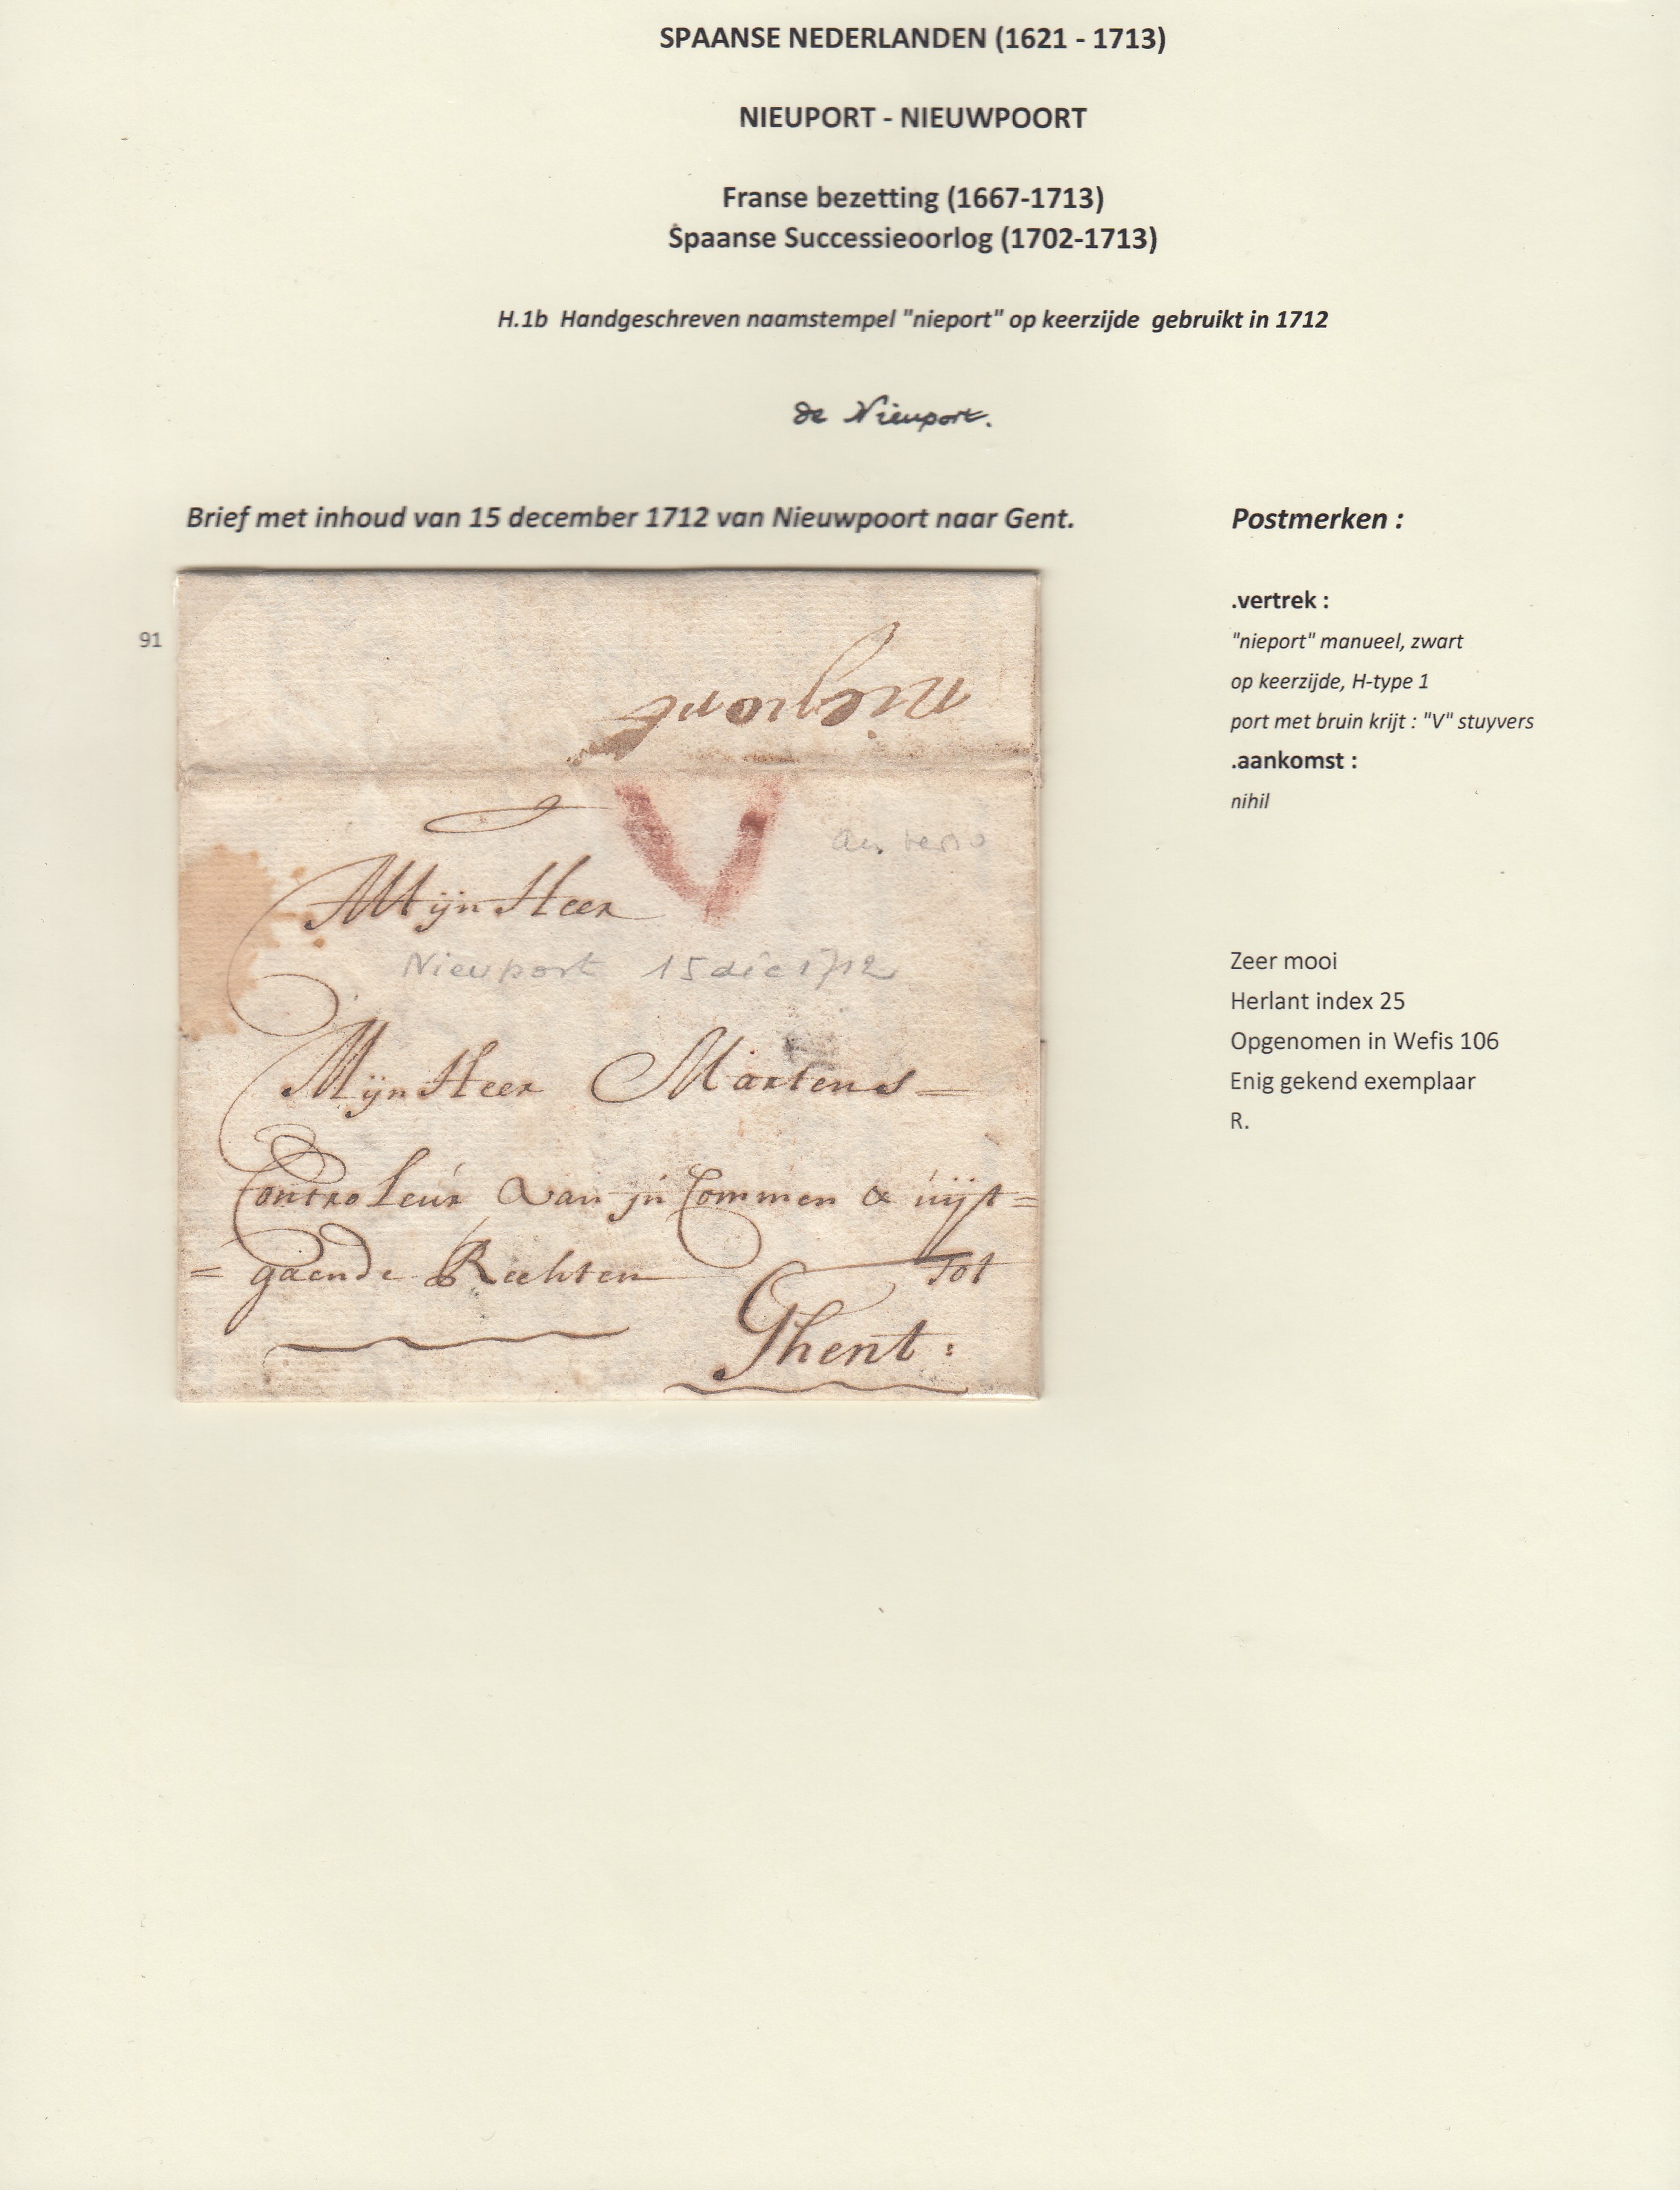 SPAANSE NEDERLANDEN (1621 - 1713)
NIEUPORT - NIEUWPOORT
Franse bezetting (1667-1713)
Spaanse Successieoorlog (1702-1713)
H.1b Handgeschreven naamstempel "nieport" op keerzijde gebruikt in 1712
de Nieuport.
Brief met inhoud van 15 december 1712 van Nieuwpoort naar Gent.
91
nieport
V
au verso
Mijn Heer
Nieuport 15 dec 1712
Mijn Heer Martens =
Controleur van in Commen & uijt =
= gaende Rechten Tot
Ghent :
Postmerken :
.vertrek :
"nieport" manueel, zwart
op keerzijde, H-type 1
port met bruin krijt : "V" stuyvers
.aankomst :
nihil
Zeer mooi
Herlant index 25
Opgenomen in Wefis 106
Enig gekend exemplaar
R.